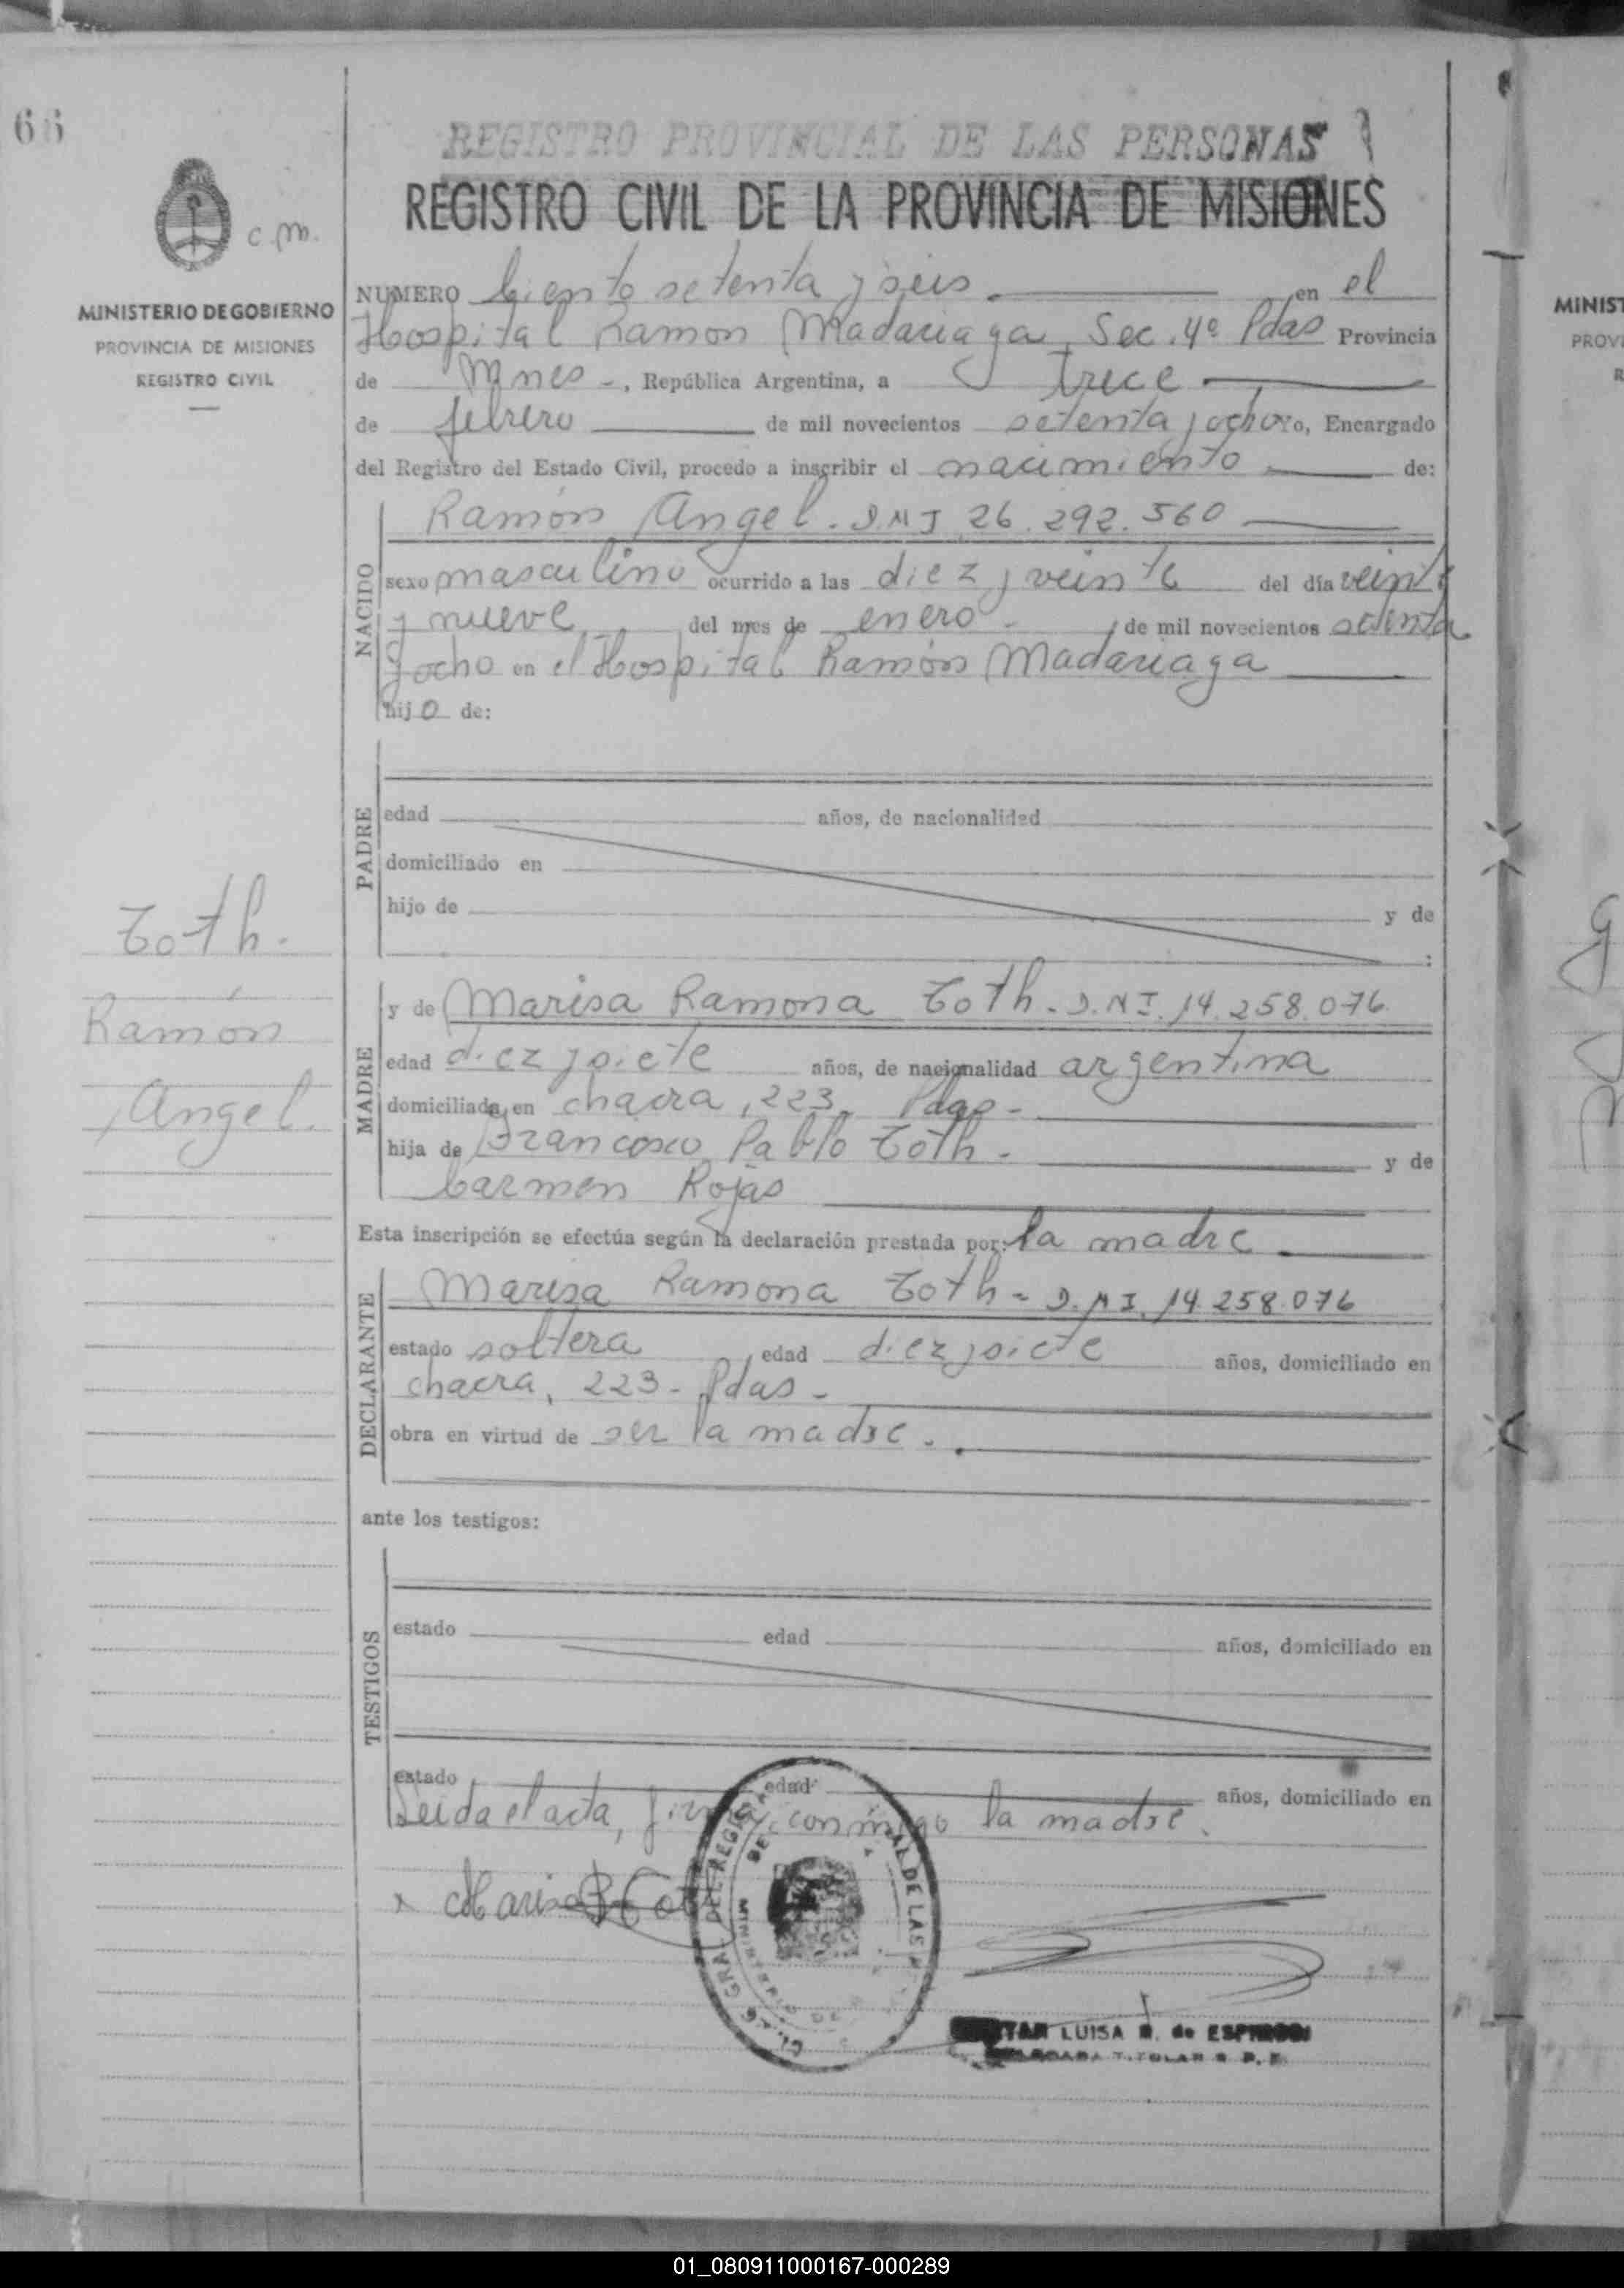 66
REGISTRO PROVINCIAL DE LAS PERSONAS
REGISTRO CIVIL DE LA PROVINCIA DE MISIONES
c.m.
MINISTERIO DE GOBIERNO
PROVINCIA DE MISIONES
REGISTRO CIVIL
NUMERO Ciento setenta y seis. en el
Hospital Ramon Madariaga, Sec. 4º Pdas Provincia
de Mnes -, República Argentina, a trece
de febrero de mil novecientos setenta y ocho Yo, Encargado
del Registro del Estado Civil, procedo a inscribir el nacimiento de:
NACIDO
Ramón Angel. D.N.I 26.292.560
sexo masculino ocurrido a las diez y veinte del día veinti
y nueve del mes de enero - de mil novecientos setenta
y ocho en el Hospital Ramón Madariaga
hijo de:
PADRE
edad años, de nacionalidad
domiciliado en
hijo de y de
:
Toth.
Ramón
Angel.
MADRE
y de Marisa Ramona Toth. D.N.I. 14.258.076
edad diez y siete años, de nacionalidad argentina
domiciliada en chacra, 223. Pdas -
hija de Francisco Pablo Toth - y de
Carmen Rojas
Esta inscripción se efectúa según la declaración prestada por: la madre
DECLARANTE
Marisa Ramona Toth - D.N.I. 14.258.076
estado soltera, edad diez y siete años, domiciliado en
chacra, 223 - Pdas -
obra en virtud de ser la madre.
ante los testigos:
TESTIGOS
estado edad años, domiciliado en
estado edad años, domiciliado en
Leida el acta, firma conmigo la madre.
x Marisa R Toth
GRAL. DEL REGIS DE LAS
MINISTERIO DE
LUISA de
TITULAR
MINIST
PROVI
R
01_080911000167-000289